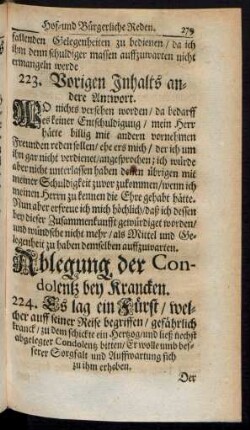 Hof- und Bürgerliche Reden. 279
fallenden Gelegenheiten zu bedienen / da ich
ihm denn schuldiger massen auffzuwarten nicht
ermangeln werde
223. Vorigen Inhalts an-
dere Antwort.
WO nichts versehen worden / da bedarff
es keiner Entschuldigung / mein Herr
hätte billig mit andern vornehmen
Freunden reden sollen / ehe er mich / der ich um
ihn gar nicht verdienet / angesprochen; ich würde
aber nicht unterlassen haben denen übrigen mit
meiner Schuldigkeit zuvor zukommen / wenn ich
meinen Herrn zu kennen die Ehre gehabt hätte.
Nun aber erfreue ich mich höchlich / daß ich dessen
bey dieser Zusammenkunfft gewürdiget worden /
und wündsche nicht mehr / als Mittel und Ge-
legenheit zu haben demselben auffzuwarten.
Ablegung der Con-
dolentz bey Krancken.
224. Es lag ein Fürst / wel-
cher auff seiner Reise begriffen / gefährlich
kranck / zu dem schickte ein Hertzog / und ließ nechst
abgelegter Condolentz bitten / Er wolle und bes-
serer Sorgfalt und Auffwartung sich
zu ihm erheben.
Der